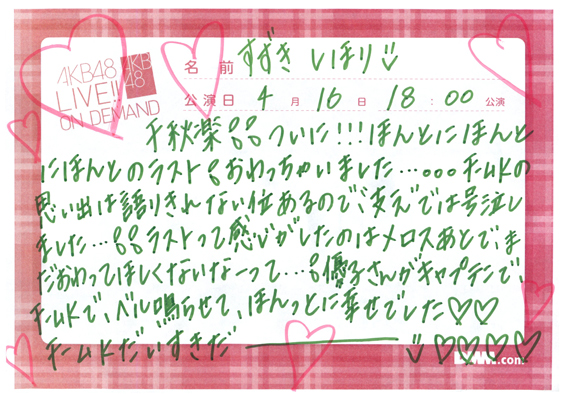 AKB48
LIVE!!
ON DEMAND
AKB
48
名 前 すずき しほり
公演日 4 月 16 日 18 : 00 公演
千秋楽 ついに!!!ほんとにほんと
にほんとのラスト おわっちゃいました…。。。チームKの
思い出は語りきれない位あるので、"支え"では号泣し
ました… ラストって感じがしたのはメロスあとで、ま
だおわってほしくないなーって… 優子さんがキャプテンで、
チームKで、ベル鳴らせて、ほんっとに幸せでした♡♡
チームKだいすきだ ――― ♡♡♡♡
.com